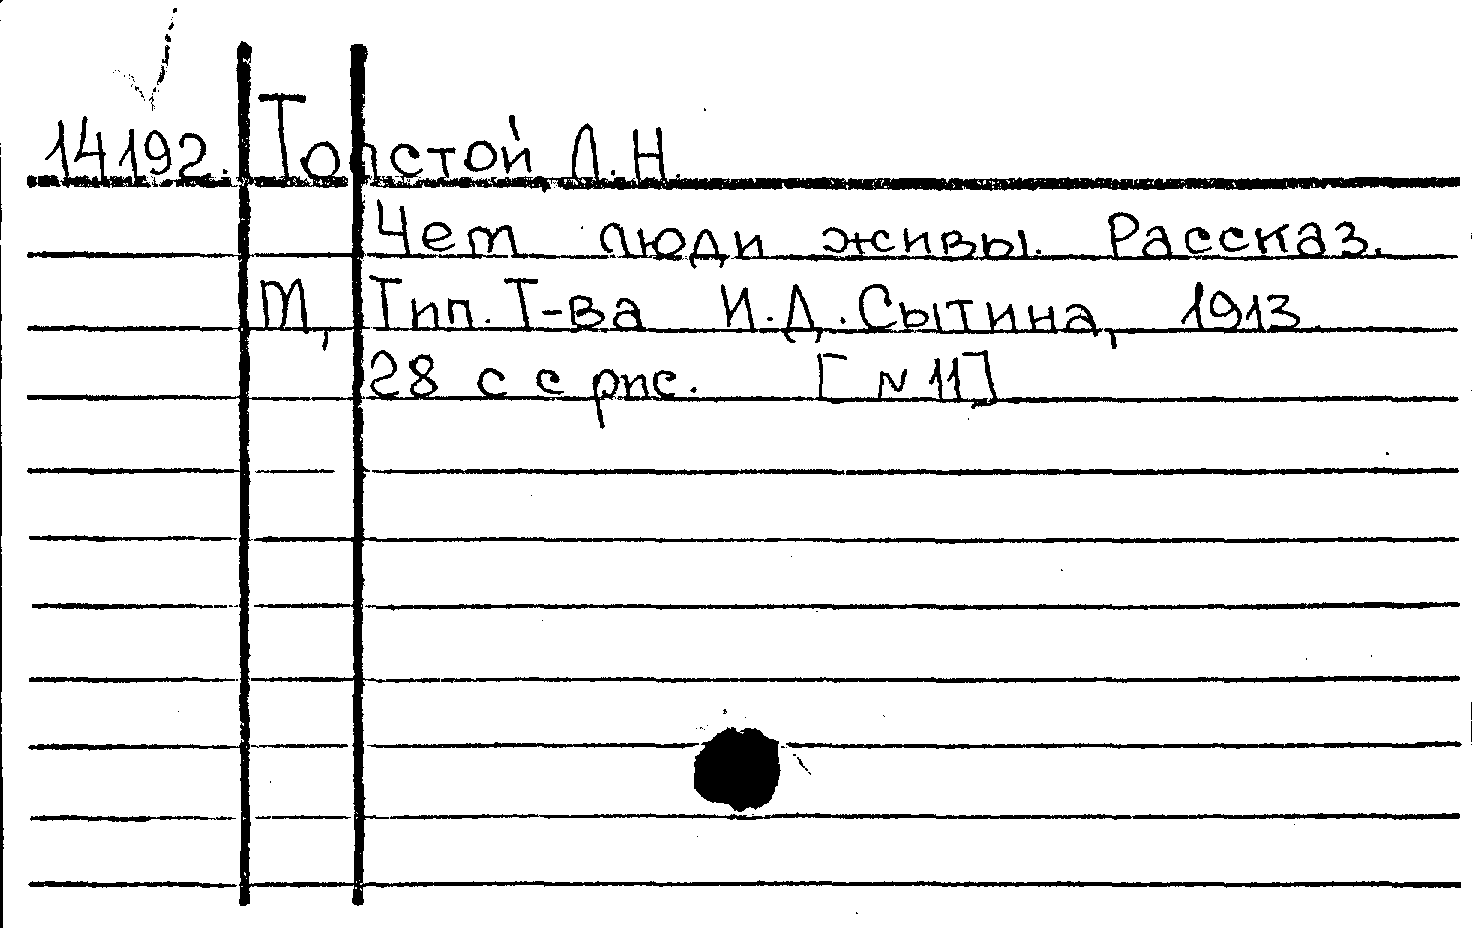 14192. Толстой Л.Н.
Чем люди живы. Рассказ.
М, Тип. Т-ва И.Д.Сытина, 1913.
28 с с рис. [N 11]